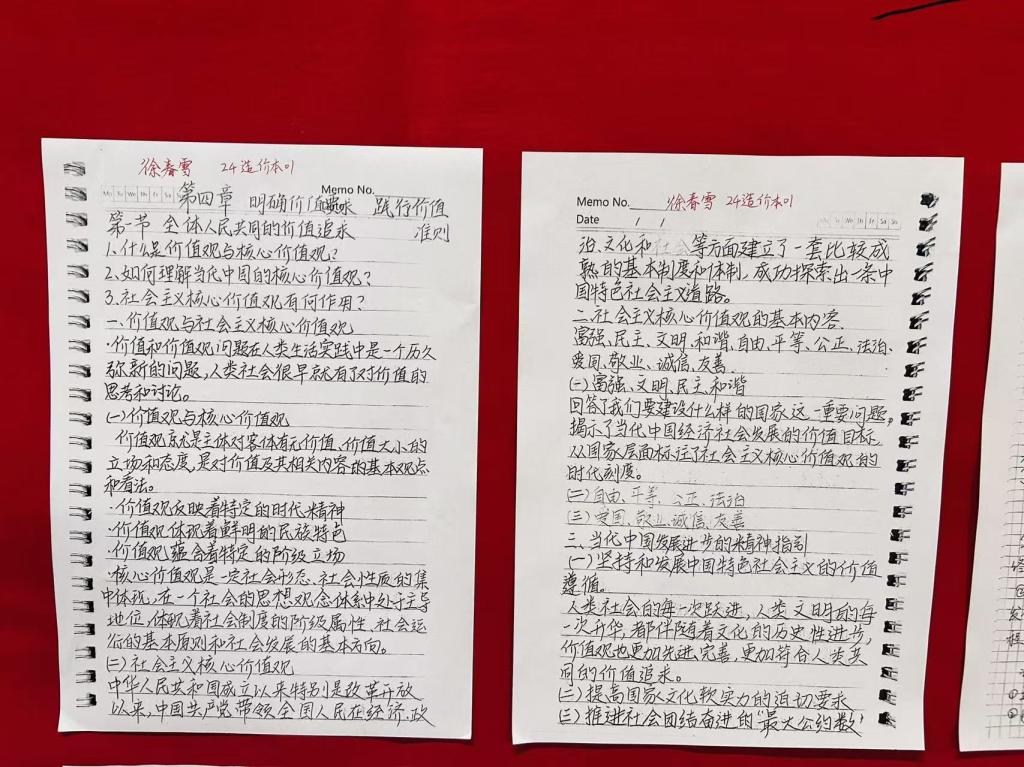 徐春雪 24造价本01
Memo No.
Mo Tu We Th Fr Sa
第四章 明确价值要求 践行价值
准则
第一节 全体人民共同的价值追求
1.什么是价值观与核心价值观?
2.如何理解当代中国的核心价值观?
3.社会主义核心价值观有何作用?
一、价值观与社会主义核心价值观
·价值和价值观问题在人类生活实践中是一个历久
弥新的问题,人类社会很早就有了对价值的
思考和讨论。
(一)价值观与核心价值观
价值观就是主体对客体有无价值、价值大小的
立场和态度,是对价值及其相关内容的基本观点
和看法。
·价值观反映着特定的时代精神
·价值观体现着鲜明的民族特色
·价值观蕴含着特定的阶级立场
·核心价值观是一定社会形态、社会性质的集
中体现,在一个社会的思想观念体系中处于主导
地位,体现着社会制度的阶级属性、社会运
行的基本原则和社会发展的基本方向。
(二)社会主义核心价值观
中华人民共和国成立以来特别是改革开放
以来,中国共产党带领全国人民在经济、政
Memo No. 徐春雪 24造价本01
Date / /
Mo Tu We Th Fr Sa Su
治、文化和社会等方面建立了一套比较成
熟的基本制度和体制,成功探索出一条中
国特色社会主义道路。
二、社会主义核心价值观的基本内容.
富强、民主、文明、和谐、自由、平等、公正、法治、
爱国、敬业、诚信、友善.
(一)富强、文明、民主、和谐
回答了我们要建设什么样的国家这一重要问题,
揭示了当代中国经济社会发展的价值目标
从国家层面标注了社会主义核心价值观的
时代刻度。
(二)自由、平等、公正、法治
(三)爱国、敬业、诚信、友善
三、当代中国发展进步的精神指引
(一)坚持和发展中国特色社会主义的价值
遵循。
人类社会的每一次跃进,人类文明的每
一次升华,都伴随着文化的历史性进步,
价值观也更加先进完善,更加符合人类共
同的价值追求。
(二)提高国家文化软实力的迫切要求
(三)推进社会团结奋进的“最大公约数”